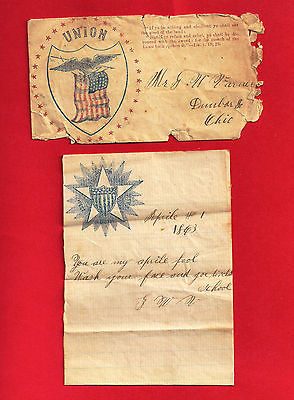 UNION
"If ye be willing and obedient, ye shall eat
the good of the land:
"But if ye refuse and rebel, ye shall be de-
voured with the sword: for the mouth of the
Lord hath spoken it."—Isa. i. 19, 20.
Mr J W
Ohio
Aprile 1
1863
You are my aprile fool
Wash your face and goe to
school
J W